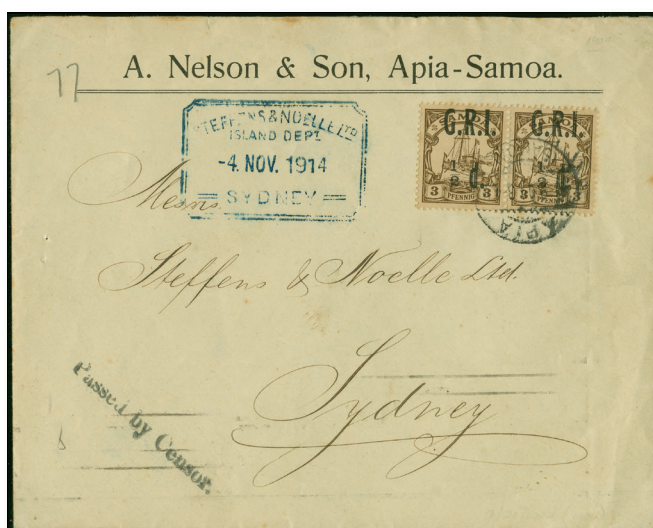 77
A. Nelson & Son, Apia-Samoa.
STEFFENS & NOELLE LTD
ISLAND DEPT
-4. NOV. 1914
SYDNEY
G.R.I. G.R.I.
1/2 d. 1/2 d.
3 PFENNIG 3 3 PFENNIG 3
APIA
Messrs
Steffens & Noelle Ltd.
Sydney
Passed by Censor.